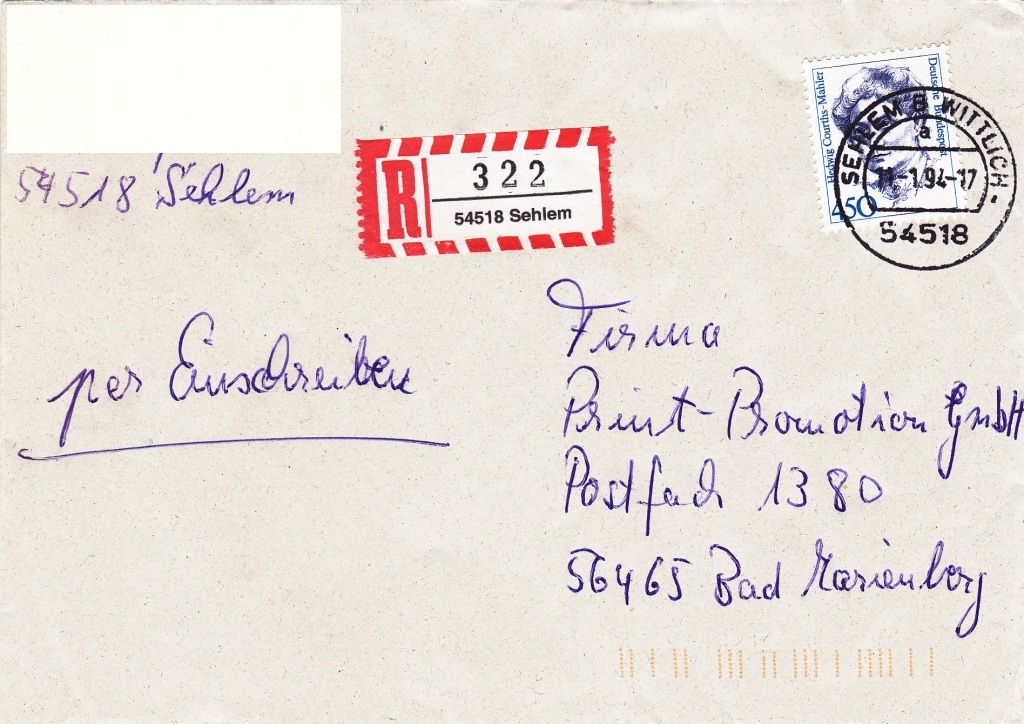 54518 Sehlem
R 322
54518 Sehlem
Hedwig Courths-Mahler
Deutsche Bundespost
450
SEHLEM B WITTLICH
a
11-1.94-17
54518
per Einschreiben
Firma
Print-Promotion GmbH
Postfach 1380
56465 Bad Marienberg